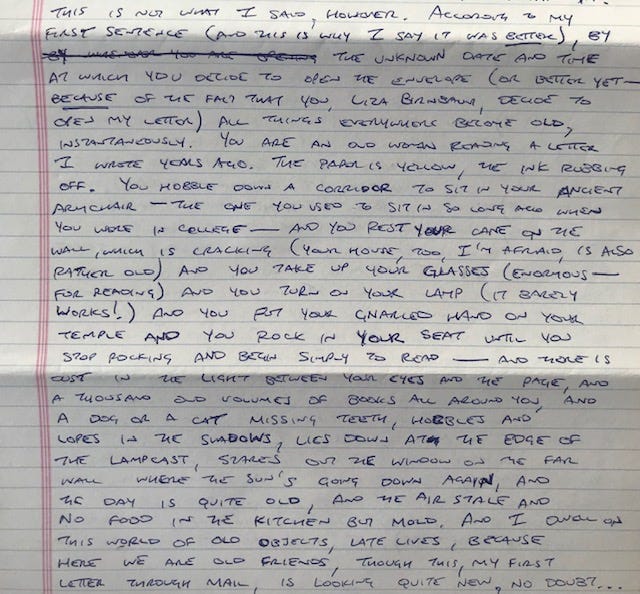 THIS IS NOT WHAT I SAID, HOWEVER. ACCORDING TO MY
FIRST SENTENCE (AND THIS IS WHY I SAY IT WAS BETTER), BY
BY WHENEVER YOU ARE OPENING THE UNKNOWN DATE AND TIME
AT WHICH YOU DECIDE TO OPEN THE ENVELOPE (OR BETTER YET—
BECAUSE OF THE FACT THAT YOU, LIZA BIRNBAUM, DECIDE TO
OPEN MY LETTER) ALL THINGS EVERYWHERE BECOME OLD,
INSTANTANEOUSLY. YOU ARE AN OLD WOMAN READING A LETTER
I WROTE YEARS AGO. THE PAPER IS YELLOW, THE INK RUBBING
OFF. YOU HOBBLE DOWN A CORRIDOR TO SIT IN YOUR ANCIENT
ARMCHAIR — THE ONE YOU USED TO SIT IN SO LONG AGO WHEN
YOU WERE IN COLLEGE — AND YOU REST YOUR CANE ON THE
WALL, WHICH IS CRACKING (YOUR HOUSE, TOO, I'M AFRAID, IS ALSO
RATHER OLD) AND YOU TAKE UP YOUR GLASSES (ENORMOUS—
FOR READING) AND YOU TURN ON YOUR LAMP (IT BARELY
WORKS!) AND YOU PUT YOUR GNARLED HAND ON YOUR
TEMPLE AND YOU ROCK IN YOUR SEAT UNTIL YOU
STOP ROCKING AND BEGIN SIMPLY TO READ — AND THERE IS
DUST IN THE LIGHT BETWEEN YOUR EYES AND THE PAGE, AND
A THOUSAND OLD VOLUMES OF BOOKS ALL AROUND YOU, AND
A DOG OR A CAT MISSING TEETH, HOBBLES AND
LOPES IN THE SHADOWS, LIES DOWN AT THE EDGE OF
THE LAMPCAST, STARES OUT THE WINDOW ON THE FAR
WALL WHERE THE SUN'S GOING DOWN AGAIN, AND
THE DAY IS QUITE OLD, AND THE AIR STALE AND
NO FOOD IN THE KITCHEN BUT MOLD. AND I DWELL ON
THIS WORLD OF OLD OBJECTS, LATE LIVES, BECAUSE
HERE WE ARE OLD FRIENDS, THOUGH THIS, MY FIRST
LETTER THROUGH MAIL, IS LOOKING QUITE NEW, NO DOUBT...